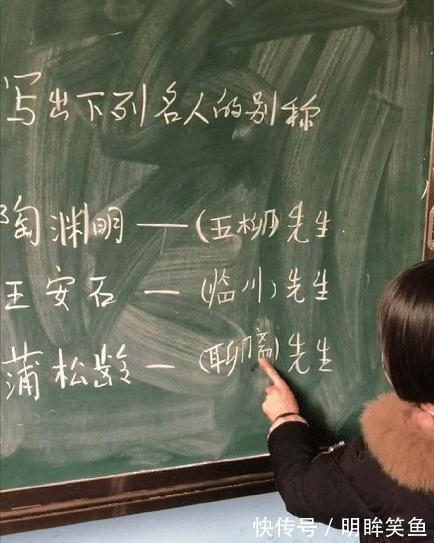 写出下列名人的别称
陶渊明—(五柳)先生
王安石—(临川)先生
蒲松龄—(聊斋)先生
快传号/明眸笑鱼